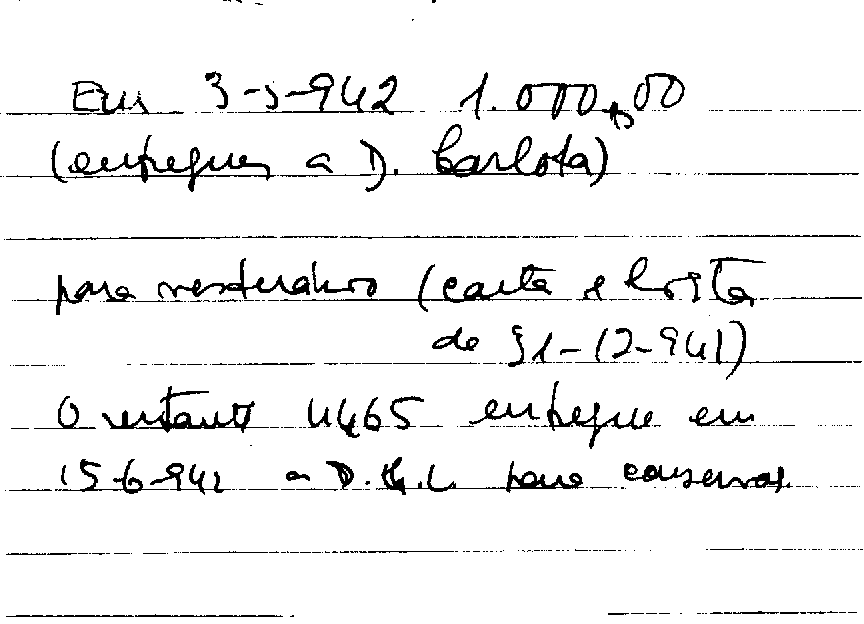 Em 3-3-942 1.000$00
(entregues a D. Carlota)
para (carta e lista
de 31-12-941)
O restante 4465 entregue em
15-6-942 a D. para conservar.